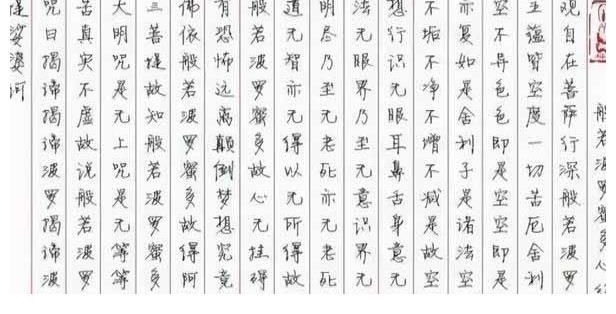 般若波罗蜜多心经
观自在菩萨行深般若波罗
五蕴皆空度一切苦厄舍利
空不异色色即是空空即是
亦复如是舍利子是诸法空
不垢不净不增不减是故空
想行识无眼耳鼻舌身意无
法无眼界乃至无意识界无
明尽乃至无老死亦无老死
道无智亦无得以无所得故
般若波罗蜜多故心无挂碍
有恐怖远离颠倒梦想究竟
佛依般若波罗蜜多故得阿
三菩提故知般若波罗蜜多
大明咒是无上咒是无等等
苦真实不虚故说般若波罗
咒曰揭谛揭谛波罗揭谛波
娑婆诃